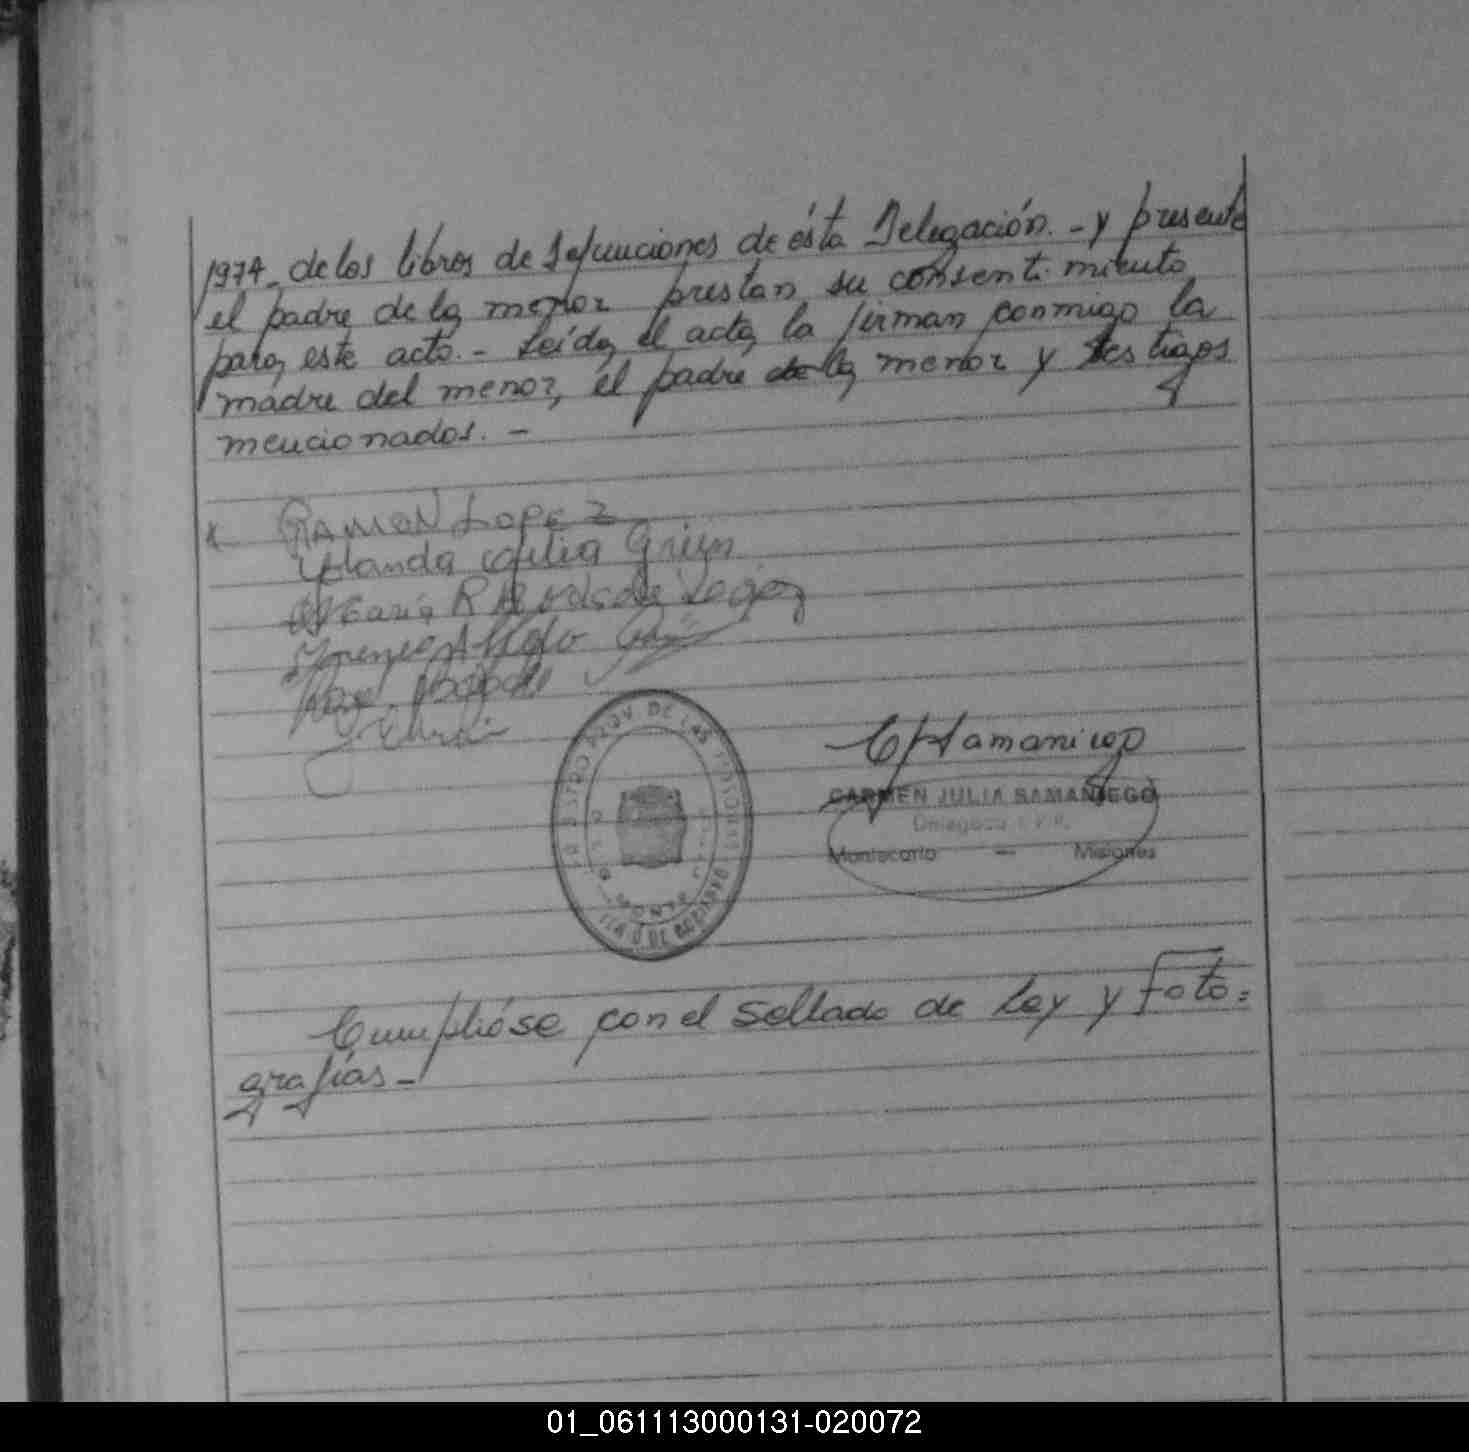 1974_ de los libros de defunciones de ésta Delegación.- y presente
el padre de la menor prestan su consentimiento
para este acto.- Leída el acta, la firman conmigo la
madre del menor, el padre de la menor y testigos
mencionados.-
RAMON LOPEZ
Yolanda Grün
María R de
Samaniego
REGISTRO PROV. DE LAS PERSONAS
CARMEN JULIA SAMANIEGO
Delegada
Montecarlo — Misiones
Cumplióse con el sellado de Ley y foto=
grafías_
01_061113000131-020072